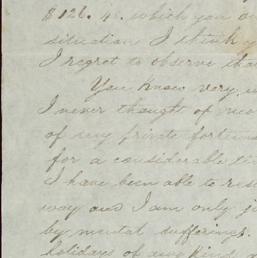 $126. 40. which you
situation I think
I regret to observe that
You know very,
I never thought of
of my private fortune
for a considerable
I have been able to
way and I am only
by mental suffering.
holidays of any kind,